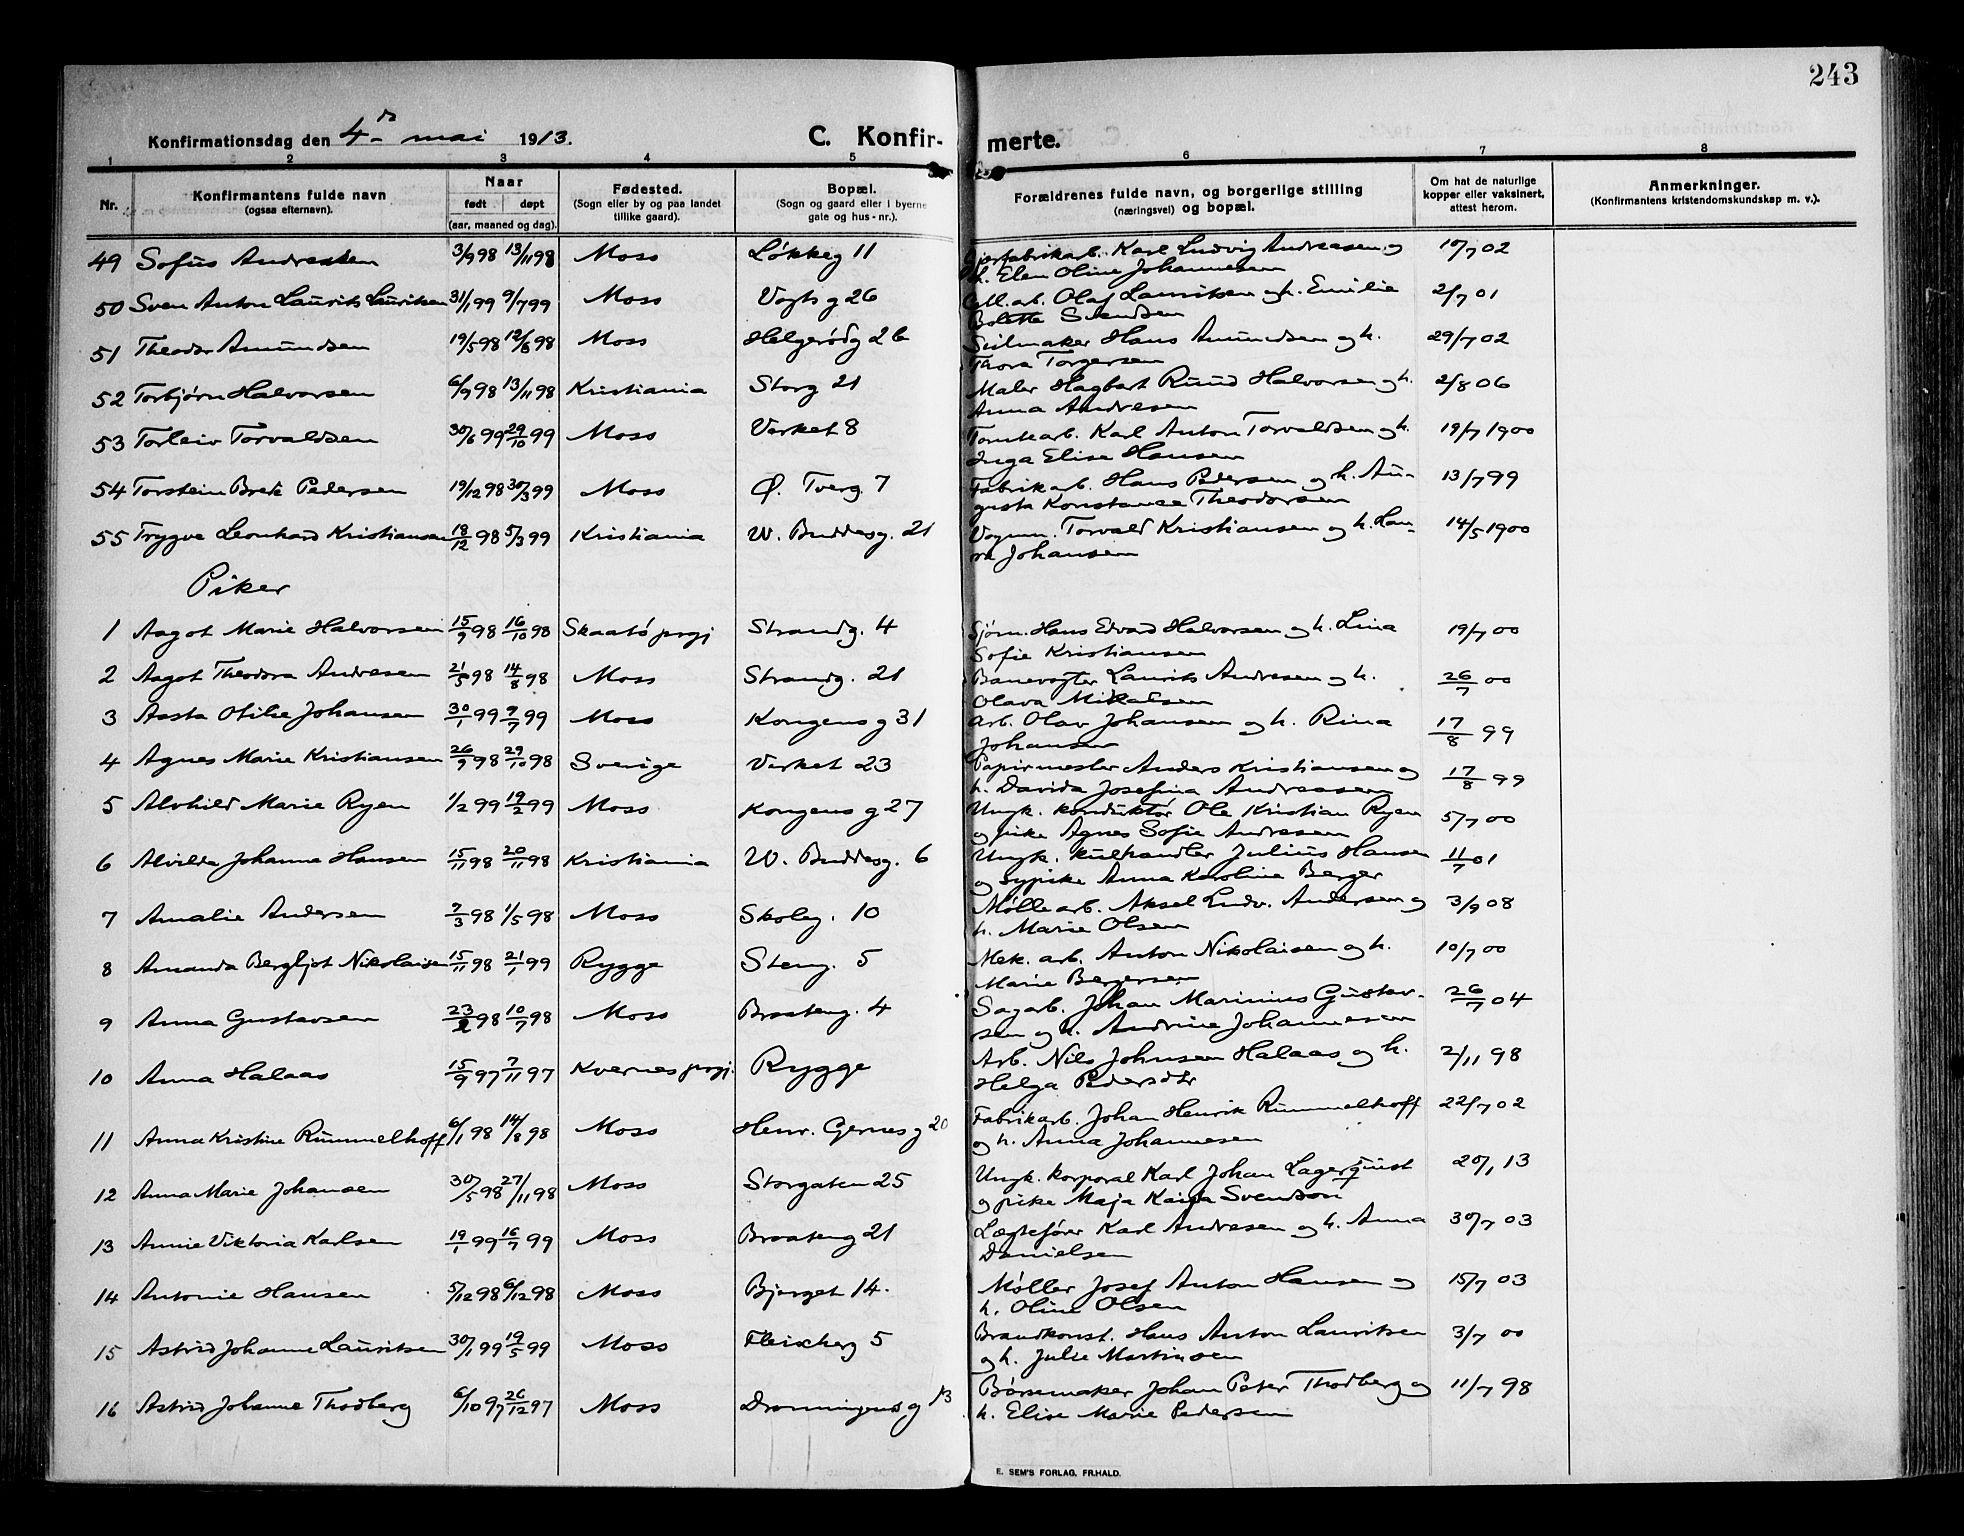 243
Konfirmationsdag den 4de mai 1913.
C. Konfirmerte.
1 2 3 4 5 6 7 8
Nr.
Konfirmantens fulde navn
(ogsaa efternavn).
Naar
født døpt
(aar, maaned og dag).
Fødested.
(Sogn eller by og paa landet
tillike gaard).
Bopæl.
(Sogn og gaard eller i byerne
gate og hus-nr.).
Forældrenes fulde navn, og borgerlige stilling
(næringsvei) og bopæl.
Om hat de naturlige
kopper eller vaksinert,
attest herom.
Anmerkninger.
(Konfirmantens kristendomskundskap m. v.).
49 Sofus Andresen 3/9 98 13/11 98 Moss Løkkeg 11 Karl Ludvig Andreasen og 10/7 02
h. Elen Oline Johannesen
50 Sven Anton Laurits Lauritsen 31/1 99 9/7 99 Moss Vogts g 26 Cell. arb. Olaf Lauritsen og h. Emilie 2/7 01
Bolette Svendsen
51 Theodor Amundsen 19/5 98 12/8 98 Moss Helgerødg 26 Seilmaker Hans Amundsen og h. 29/7 02
Thora Torgersen
52 Torbjørn Halvorsen 6/9 98 13/11 98 Kristiania Storg 21 Maler Hagbart Ruud Halvorsen og h. 2/8 06
Anna Andresen
53 Torleiv Torvaldsen 30/6 99 29/10 99 Moss Verket 8 Tomtearb. Karl Anton Torvaldsen og h. 19/7 1900
Inga Elise Hansen
54 Torstein Brek Pedersen 19/12 98 30/3 99 Moss Ø. Tverg. 7 Fabrikarb. Hans Pedersen og h. Au-
gusta Konstance Theodorsen 13/7 99
55 Trygve Leonhard Kristiansen 18/12 98 5/3 99 Kristiania W. Buddesg. 21 Vognm. Torvald Kristiansen og h. Lau- 14/5 1900
ra Johansen
Piker
1 Aagot Marie Halvorsen 15/9 98 16/10 98 Skaatø prgj Strandg. 4 Sjøm. Hans Edvard Halvorsen og h. Lina 19/7 00
Sofie Kristiansen
2 Aagot Theodora Andresen 21/5 98 14/8 98 Moss Strandg. 21 Banevogter Laurits Andresen og h. 26/7 00
Olava Mikalsen
3 Aasta Otilie Johansen 30/1 99 9/7 99 Moss Kongens g 31 Arb. Olav Johansen og h. Rina 17/8 99
Johansen
4 Agnes Marie Kristiansen 26/9 98 29/10 98 Sverige Verket 23 Papirmester Anders Kristiansen og 17/8 99
h. Davida Josefina Andreasen
5 Alvhild Marie Ryen 1/2 99 19/2 99 Moss Kongens g 27 Ungk. konduktør Ole Kristian Ryen 5/7 00
og pike Agnes Sofie Andresen
6 Alvilda Johanna Hansen 15/11 98 20/11 98 Kristiania W. Buddesg. 6 Ungk. kulhandler Julius Hansen 11/7 01
og sypike Anna Karoline Berger
7 Amalie Andersen 7/3 98 1/5 98 Moss Skoleg. 10 Møllearb. Aksel Ludv. Andersen og 3/9 08
h. Marie Olsen
8 Amanda Bergljot Nikolaisen 15/11 98 21/1 99 Rygge Steng. 5 Mek. arb. Anton Nikolaisen og h. 10/7 00
Marie Bergersen
9 Anna Gustavsen 23/2 98 10/7 98 Moss Braateng. 4 Sagarb. Johan Marinius Gustav- 26/7 04
sen og h. Andrine Johannesen
10 Anna Halaas 15/9 97 7/11 97 Kvernes prgj. Rygge Arb. Nils Johnsen Halaas og h. 2/11 98
Helga Pedersdtr
11 Anna Kristine Rummelhoff 6/1 98 14/8 98 Moss Henr. Gernes g 20 Fabrikarb. Johan Henrik Rummelhoff 22/7 02
og h. Anna Johannesen
12 Anna Marie Johansen 30/5 98 27/11 98 Moss Storgaten 25 Ungk. korporal Karl Johan Lagerquist 20/1 13
og pike Maja Kaisa Svenson
13 Annie Viktoria Karlsen 19/1 99 16/7 99 Moss Braateng 21 Lægtefører Karl Andresen og h. Anna 30/7 03
Danielsen
14 Antonie Hansen 5/12 98 6/12 98 Moss Bjerget 14. Møller Josef Anton Hansen og 15/7 03
h. Oline Olsen
15 Astrid Johanne Lauritsen 30/1 99 19/5 99 Moss Fleischerg 5 Brandkonst. Hans Anton Lauritsen 3/7 00
og h. Julie Martinsen
16 Astrid Johanne Thodberg 6/10 97 26/12 97 Moss Dronningens g 13 Børsemaker Johan Peter Thodberg og 11/7 98
h. Elise Marie Pedersen
E. SEM'S FORLAG, FR.HALD.